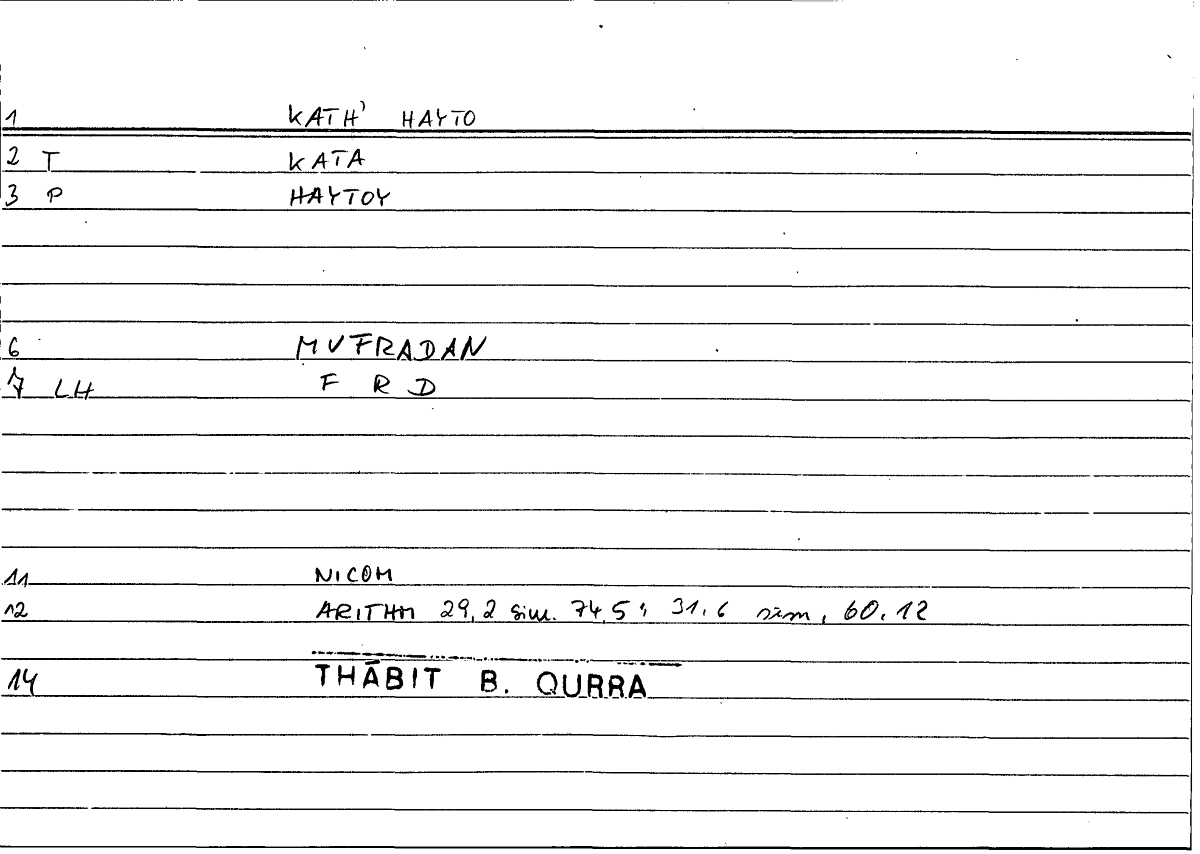 1 KATH' HAYTO
2 T KATA
3 P HAYTOY
6 MUFRADAN
7 LH F R D
11 NICOM
12 ARITHM 29,2 sim. 74,5; 31,6 sim, 60,12
14 THĀBIT B. QURRA